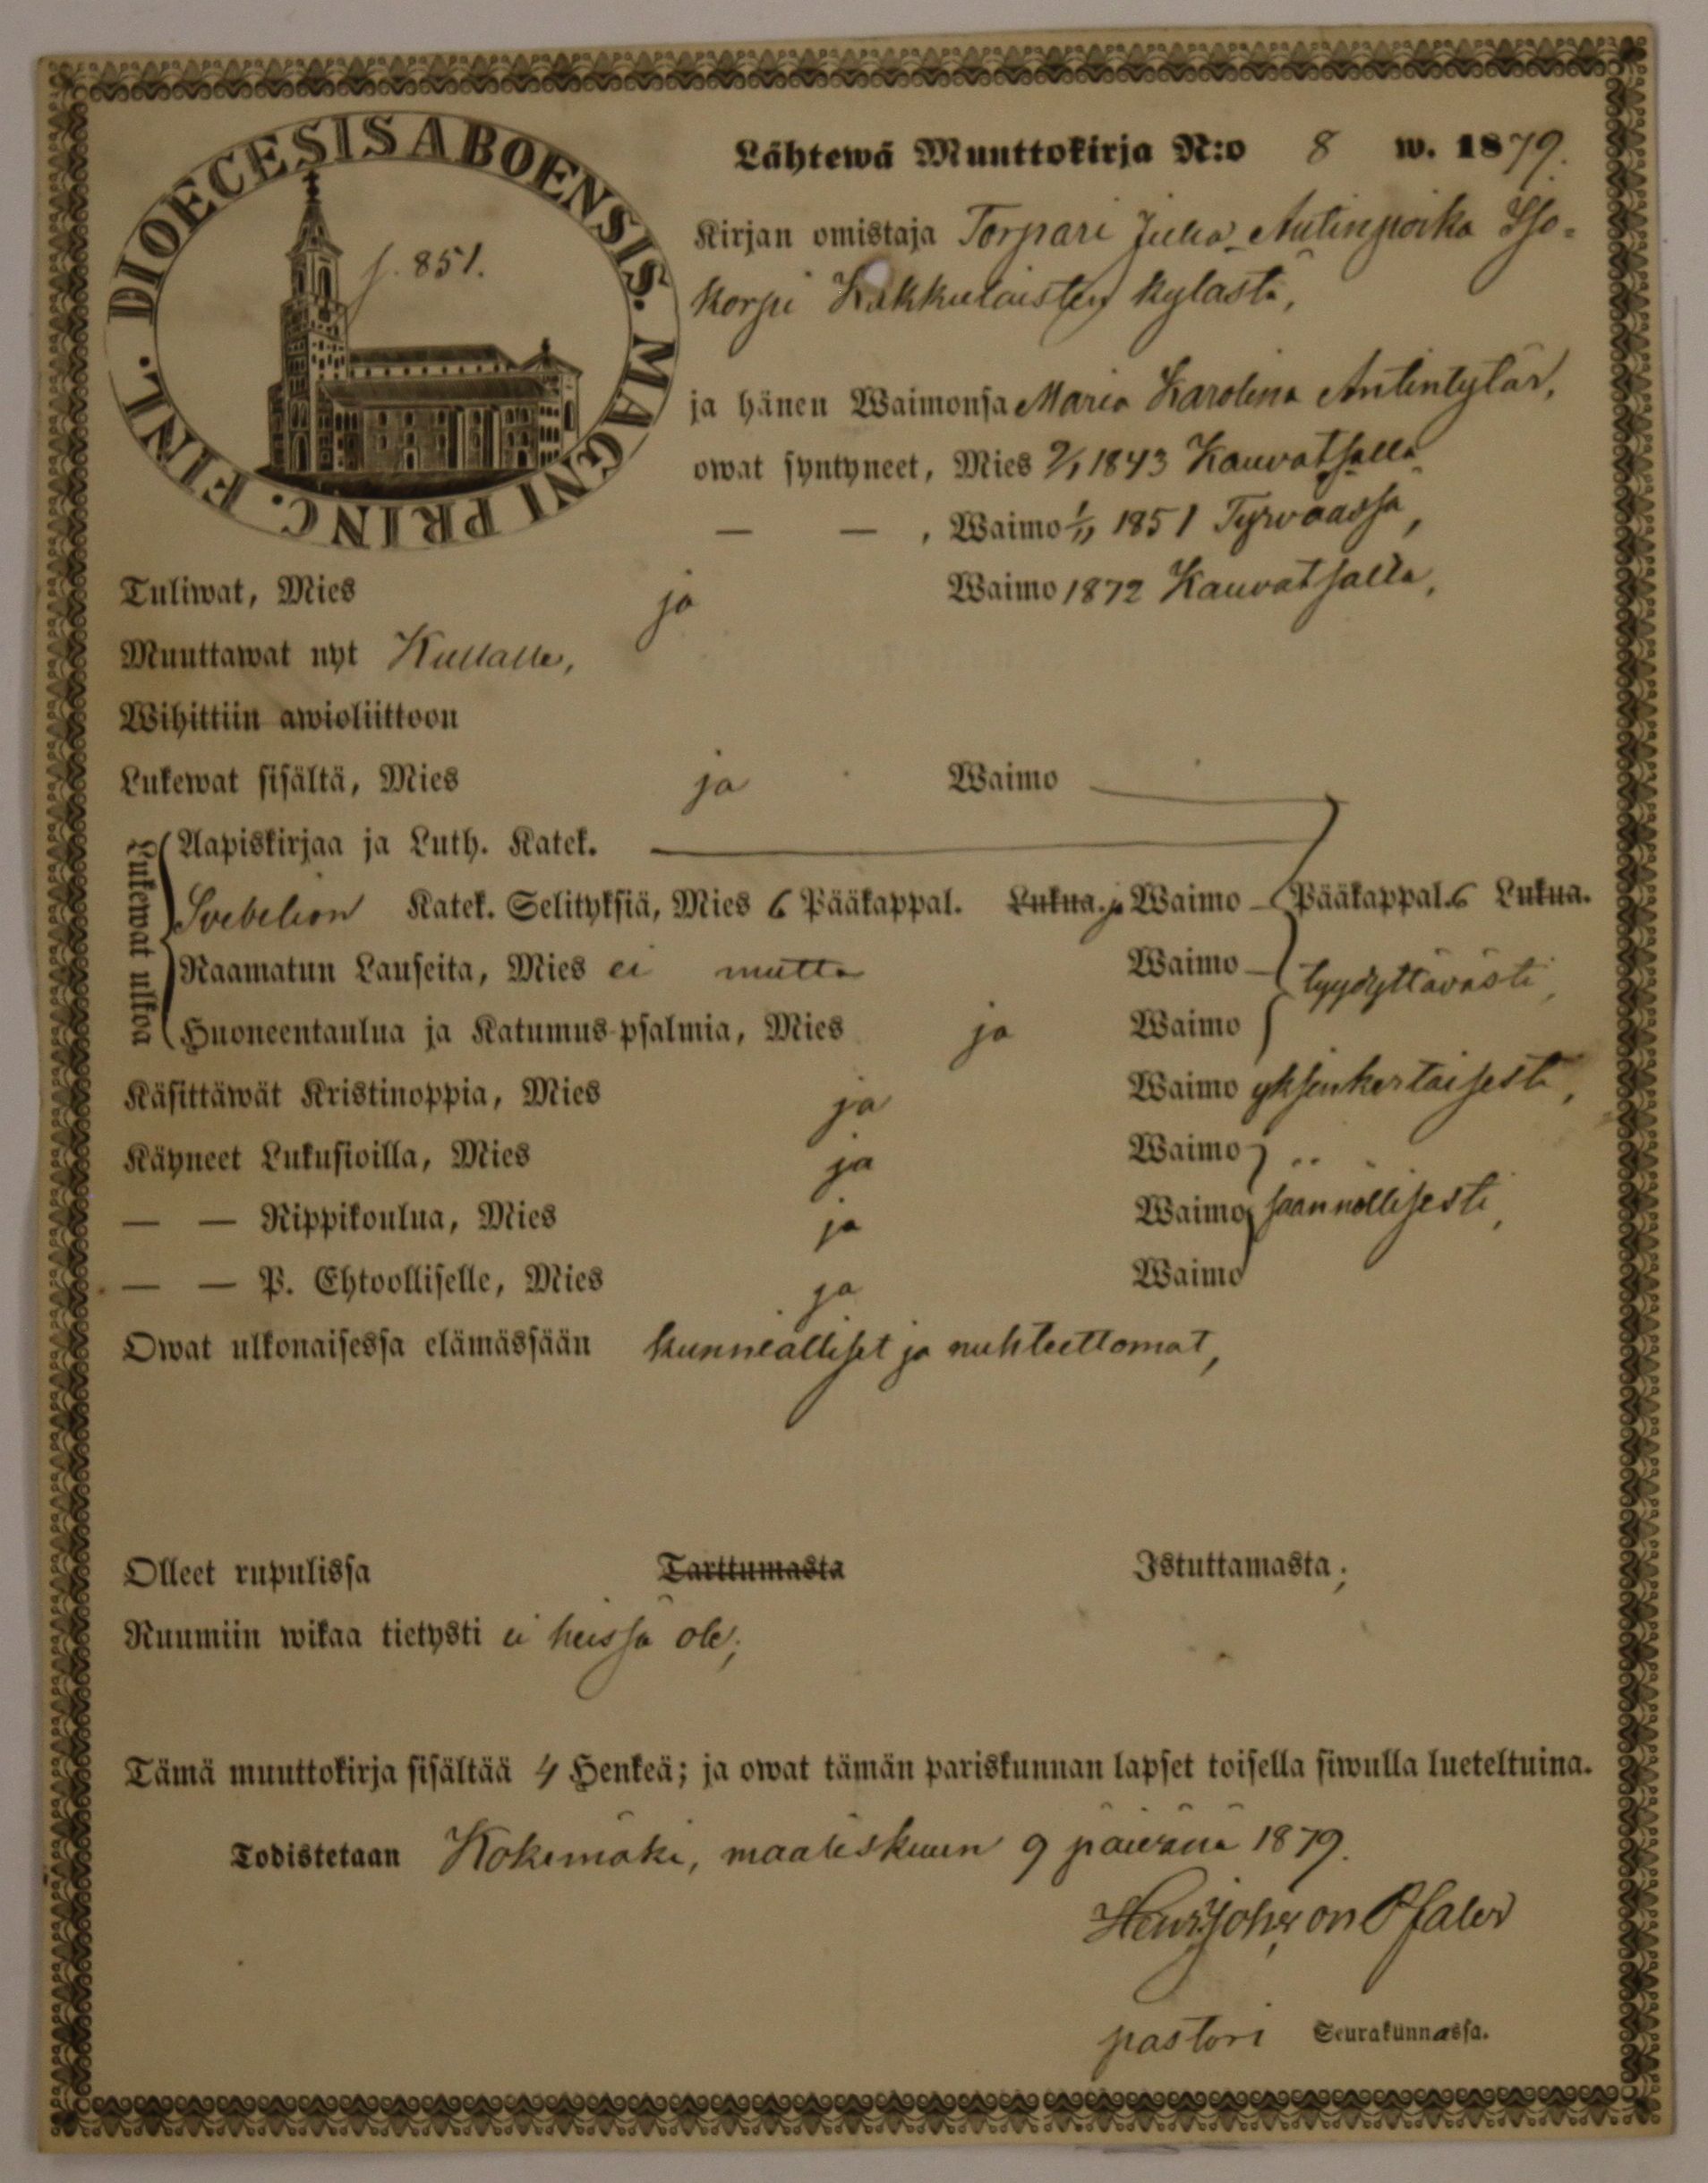 DIOECESIS ABOENSIS. MAGNI PRINC. FINL.
f. 851.
Lähtewä Muuttokirja N:o 8 w. 1879.
Kirjan omistaja Torpari Juha Antinpoika Iso-
korpi Kakkulaisten kylästä,
ja hänen Waimonsa Maria Karolina Antintytär,
owat syntyneet, Mies 9/1 1843 Kauvatsalla
— — , Waimo 1/11 1851 Tyrväässä,
Tuliwat, Mies ja Waimo 1872 Kauvatsalta,
Muuttawat nyt Kullalle,
Wihittiin awioliittoon
Lukewat sisältä, Mies ja Waimo
Lukewat ulkoa
Aapiskirjaa ja Luth. Katek.
Svebelion Katek. Selityksiä, Mies 6 Pääkappal. Lukua. ja Waimo Pääkappal. 6 Lukua.
Raamatun Lauseita, Mies ei mutta Waimo tyydyttävästi,
Huoneentaulua ja Katumus-psalmia, Mies ja Waimo
Käsittäwät Kristinoppia, Mies ja Waimo yksinkertaisesti,
Käyneet Lukusioilla, Mies ja Waimo
— — Rippikoulua, Mies ja Waimo säännöllisesti,
— — P. Ehtoolliselle, Mies ja Waimo
Owat ulkonaisessa elämässään kunnialliset ja nuhteettomat,
Olleet rupulissa Tarttumasta Istuttamasta;
Ruumiin wikaa tietysti ei heissä ole;
Tämä muuttokirja sisältää 4 Henkeä; ja owat tämän pariskunnan lapset toisella siwulla lueteltuina.
Todistetaan Kokemäki, maaliskuun 9 päivänä 1879.
Henr. Joh. von Pfaler
pastori Seurakunnassa.